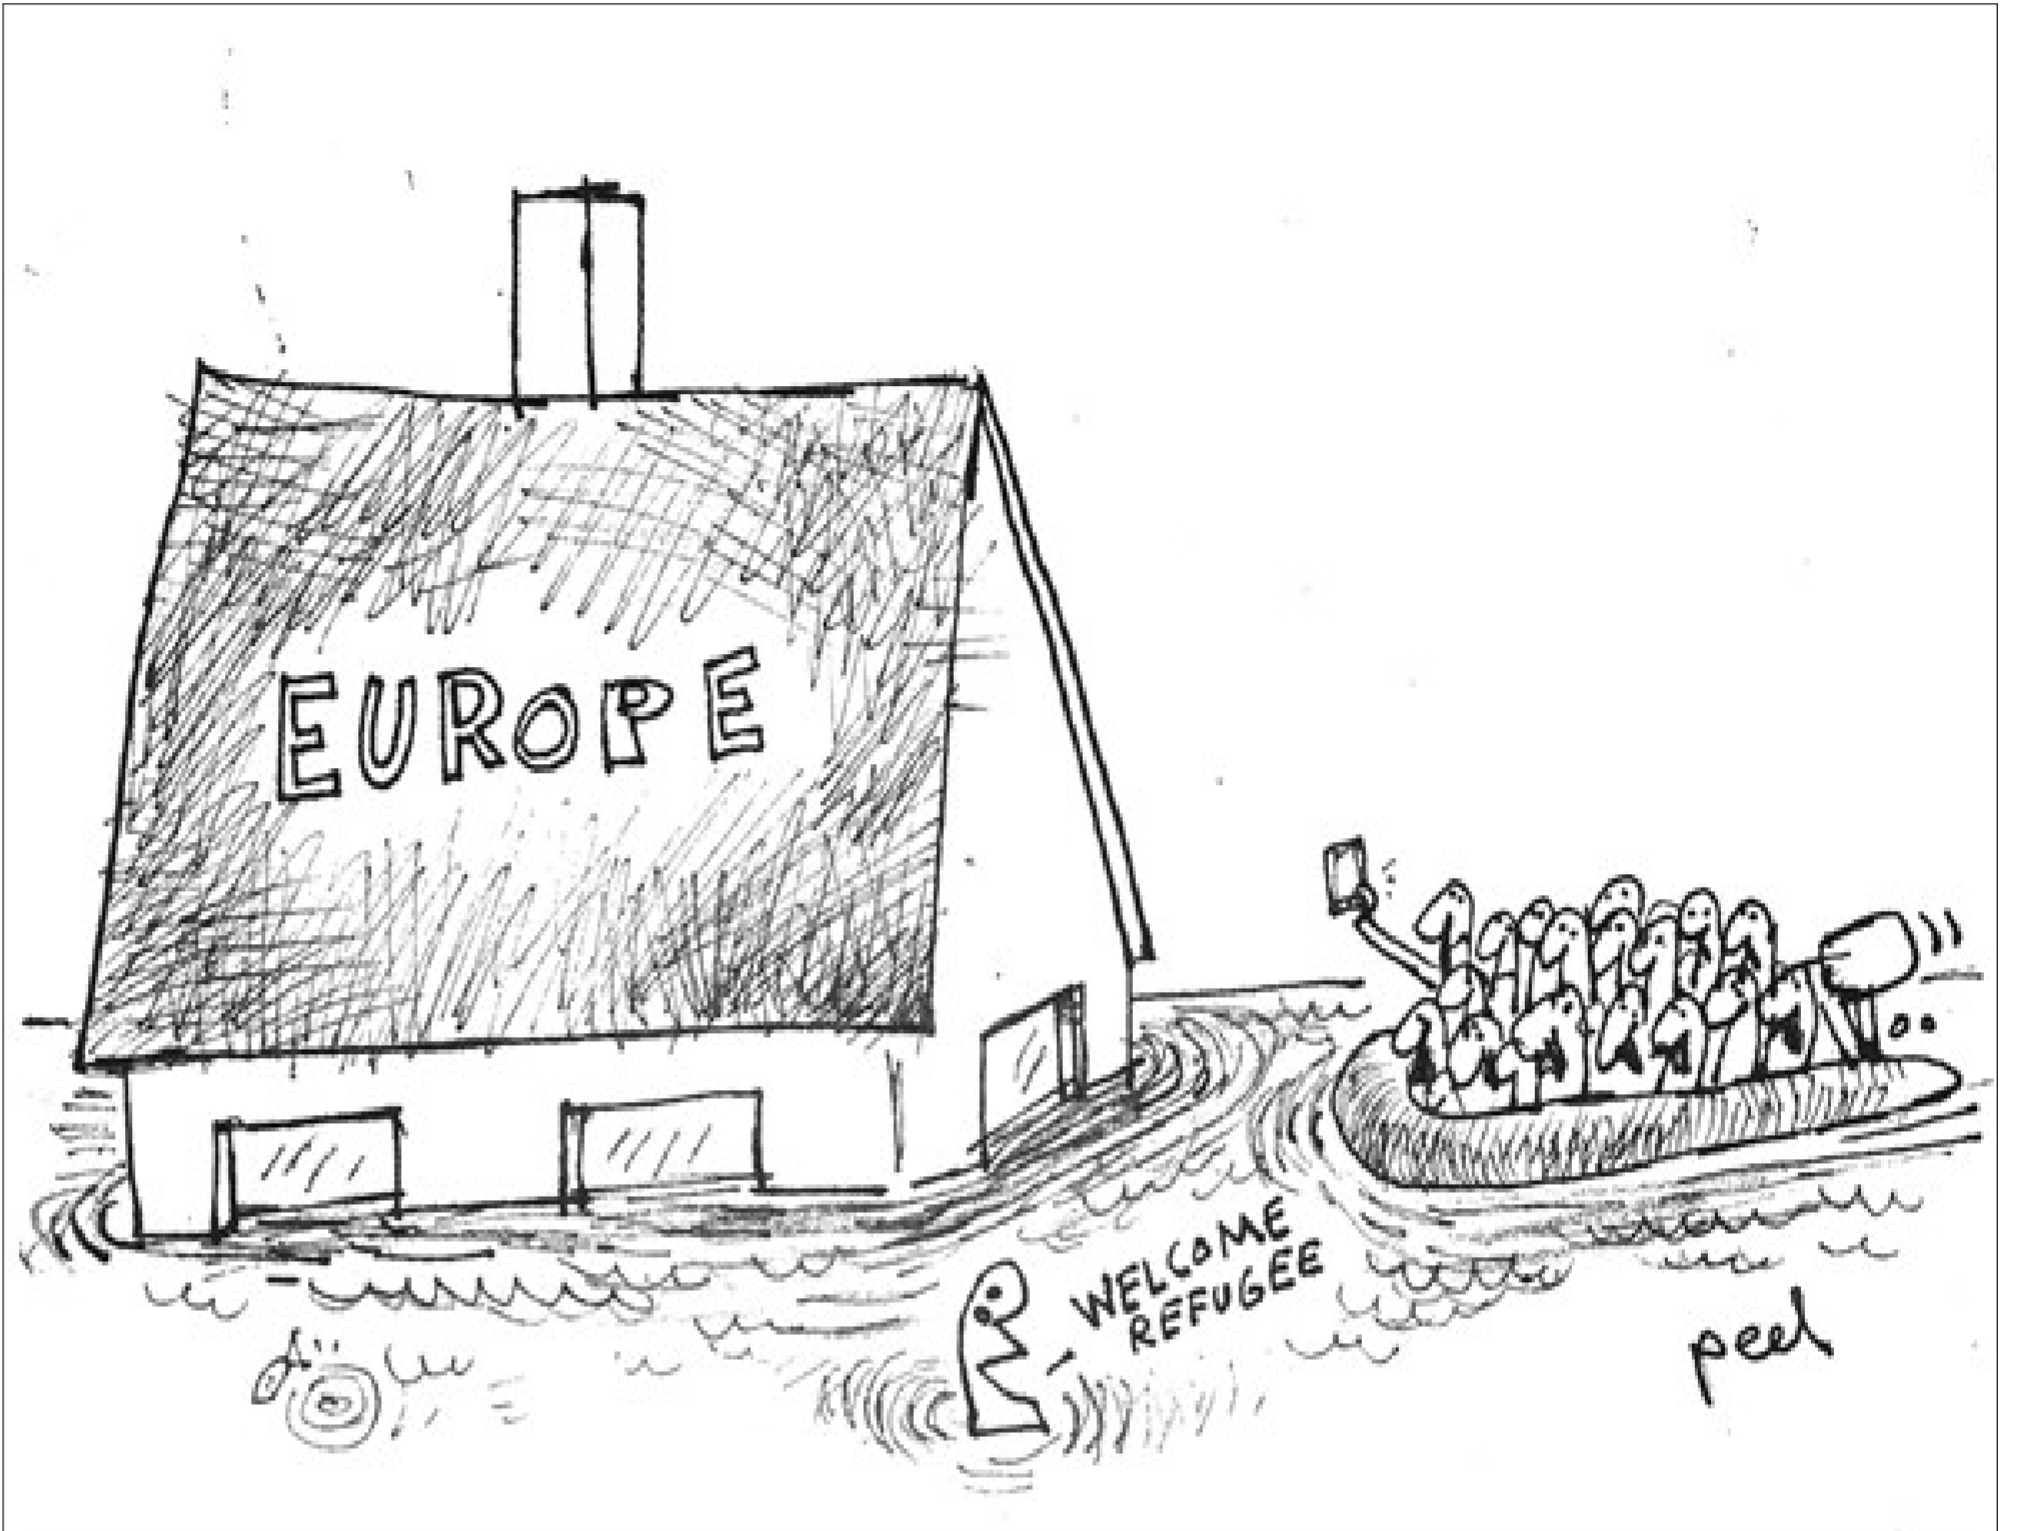 EUROPE
WELCOME
REFUGEE
peel